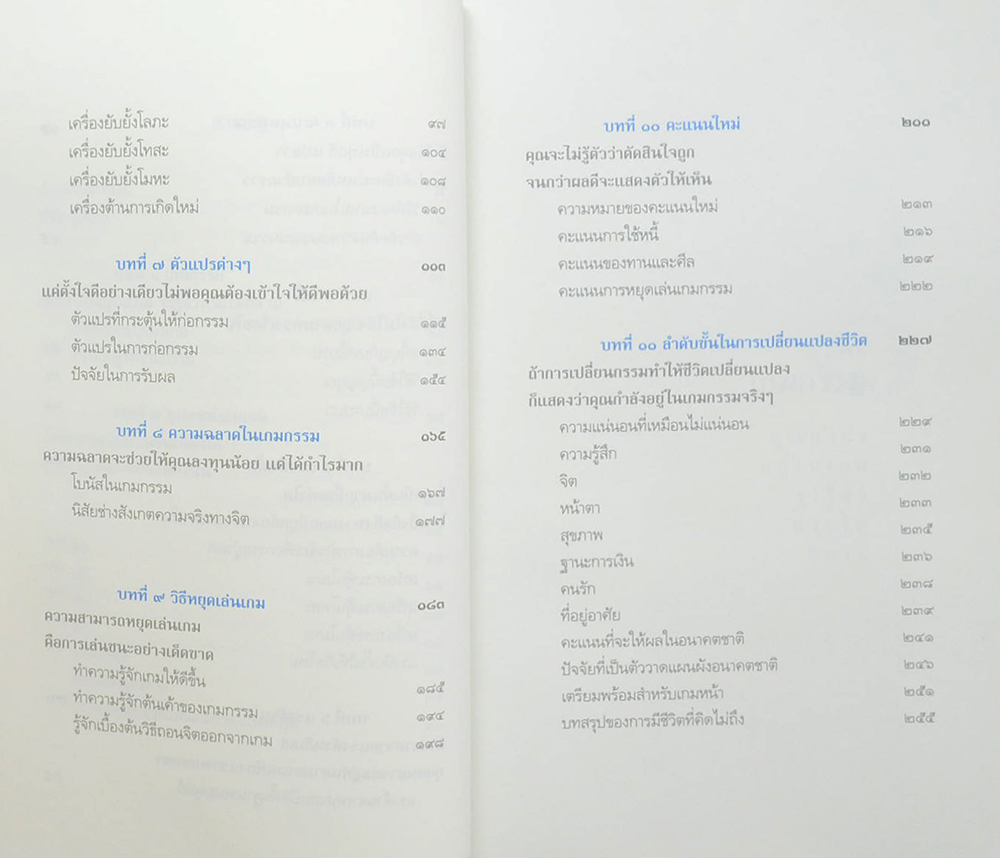 เครื่องยับยั้งโลภะ ๙๗
เครื่องยับยั้งโทสะ ๑๐๔
เครื่องยับยั้งโมหะ ๑๐๘
เครื่องต้านการเกิดใหม่ ๑๑๐
บทที่ ๗ ตัวแปรต่างๆ ๑๑๓
แค่ตั้งใจดีอย่างเดียวไม่พอคุณต้องเข้าใจให้ดีพอด้วย
ตัวแปรที่กระตุ้นให้ก่อกรรม ๑๑๕
ตัวแปรในการก่อกรรม ๑๓๔
ปัจจัยในการรับผล ๑๕๔
บทที่ ๘ ความฉลาดในเกมกรรม ๑๖๕
ความฉลาดจะช่วยให้คุณลงทุนน้อย แต่ได้กำไรมาก
โบนัสในเกมกรรม ๑๖๗
นิสัยช่างสังเกตความจริงทางจิต ๑๗๗
บทที่ ๙ วิธีหยุดเล่นเกม ๑๘๓
ความสามารถหยุดเล่นเกม
คือการเล่นชนะอย่างเด็ดขาด
ทำความรู้จักเกมให้ดีขึ้น ๑๘๕
ทำความรู้จักต้นเค้าของเกมกรรม ๑๙๔
รู้จักเบื้องต้นวิธีถอนจิตออกจากเกม ๑๙๘
บทที่ ๑๐ คะแนนใหม่ ๒๐๐
คุณจะไม่รู้ตัวว่าตัดสินใจถูก
จนกว่าผลดีจะแสดงตัวให้เห็น
ความหมายของคะแนนใหม่ ๒๑๓
คะแนนการใช้หนี้ ๒๑๖
คะแนนของทานและศีล ๒๑๙
คะแนนการหยุดเล่นเกมกรรม ๒๒๒
บทที่ ๑๑ ลำดับขั้นในการเปลี่ยนแปลงชีวิต ๒๒๗
ถ้าการเปลี่ยนกรรมทำให้ชีวิตเปลี่ยนแปลง
ก็แสดงว่าคุณกำลังอยู่ในเกมกรรมจริงๆ
ความแน่นอนที่เหมือนไม่แน่นอน ๒๒๙
ความรู้สึก ๒๓๑
จิต ๒๓๒
หน้าตา ๒๓๓
สุขภาพ ๒๓๕
ฐานะการเงิน ๒๓๖
คนรัก ๒๓๘
ที่อยู่อาศัย ๒๓๙
คะแนนที่จะให้ผลในอนาคตชาติ ๒๔๑
ปัจจัยที่เป็นตัววาดแผนผังอนาคตชาติ ๒๔๖
เตรียมพร้อมสำหรับเกมหน้า ๒๕๑
บทสรุปของการมีชีวิตที่คิดไม่ถึง ๒๕๕